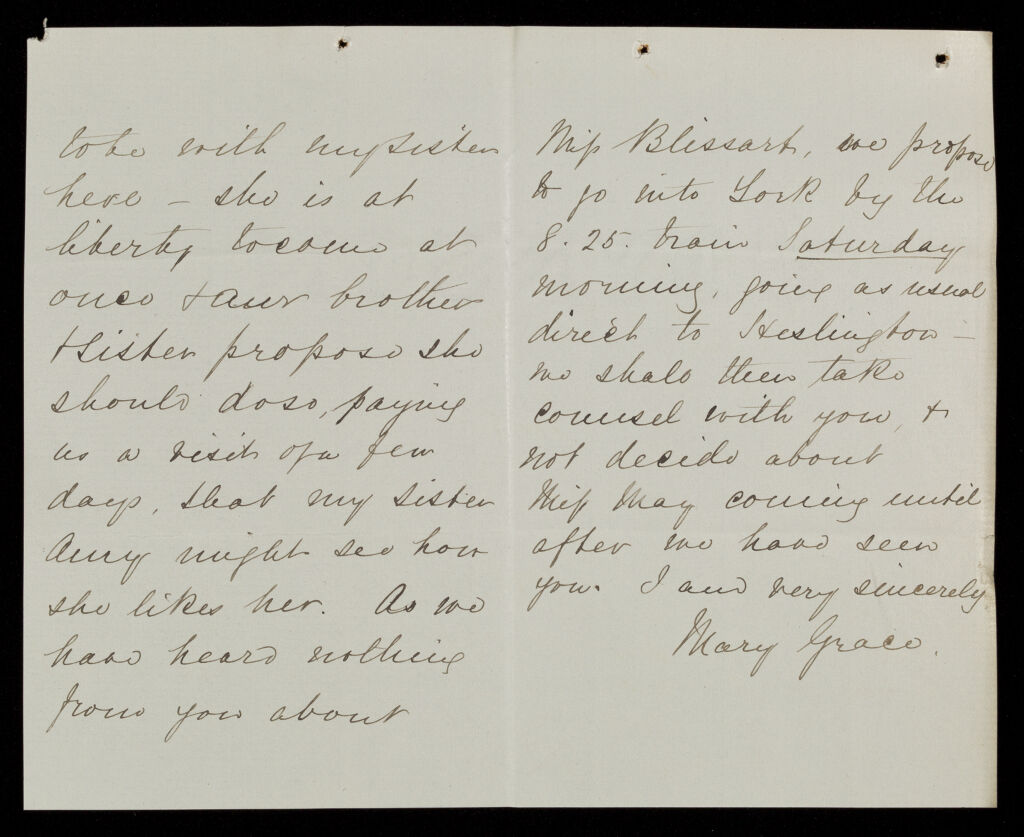 to be with my sister
here - she is at
liberty to come at
once & our brother
& sister propose she
should do so, paying
us a visit of a few
days, that my sister
Amy might see how
she likes her. As we
have heard nothing
from you about
Miss Blissart, we propose
to go into York by the
8.25. train Saturday
morning, going as usual
direct to Heslington -
we shall then take
counsel with you, &
not decide about
Miss May coming until
after we have seen
you. I am very sincerely
Mary Grace.